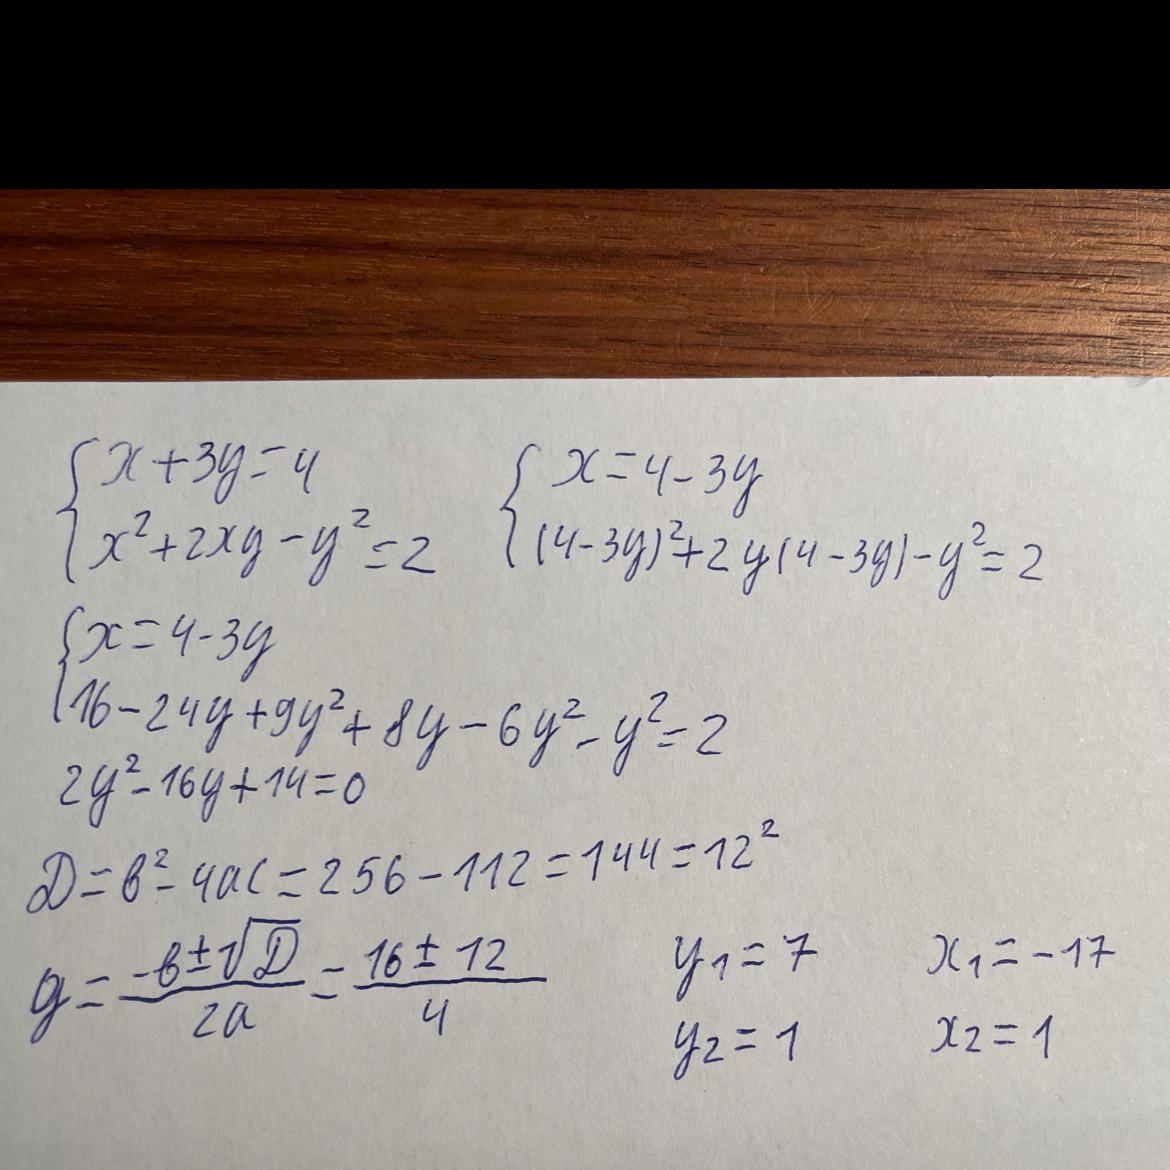 { x+3y=4 { x=4-3y
x²+2xy-y²=2 (4-3y)²+2y(4-3y)-y²=2
{ x=4-3y
16-24y+9y²+8y-6y²-y²=2
2y²-16y+14=0
D=b²-4ac=256-112=144=12²
y=(-b±√D)/2a=(16±12)/4 y₁=7 x₁=-17
y₂=1 x₂=1